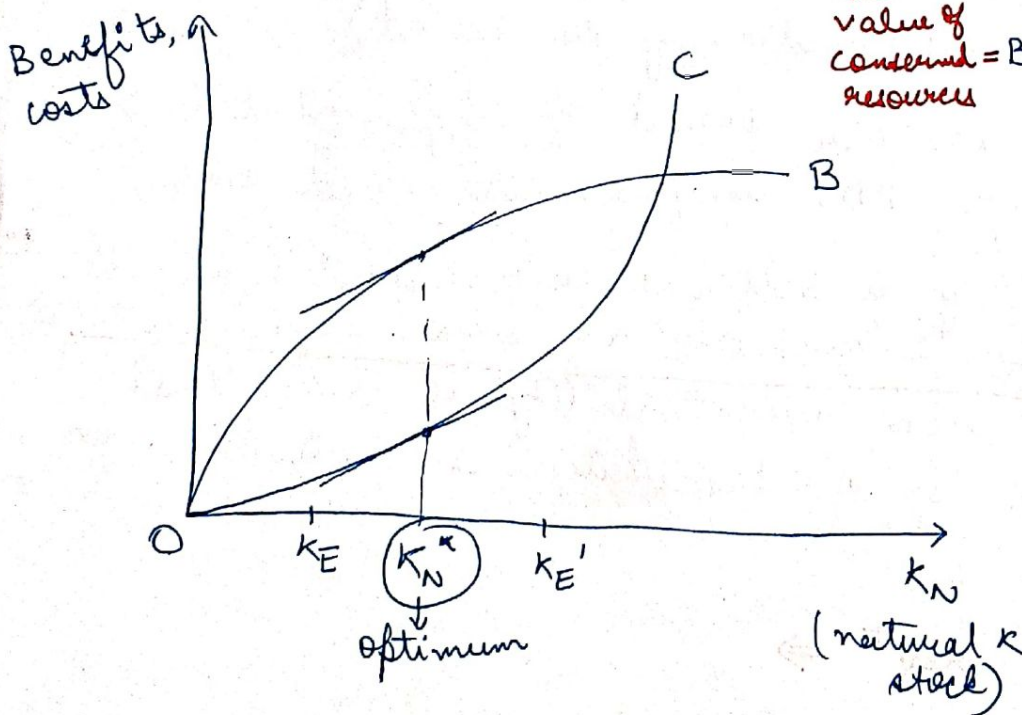 Benefits,
costs
value of
conserved = B
resources
C
B
O
K_E
K_N*
K_E'
K_N
optimum
(natural K
stock)